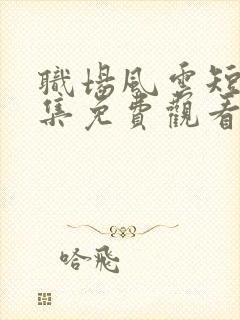 職場風雲短
集免費觀看
哈飛